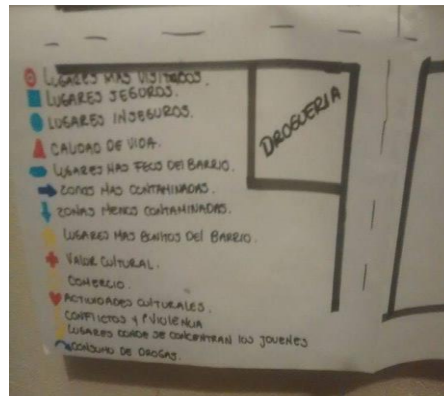 LUGARES MAS VISITADOS.
LUGARES SEGUROS.
LUGARES INSEGUROS.
CALIDAD DE VIDA.
LUGARES MAS FEOS DEL BARRIO.
ZONAS MAS CONTAMINADAS.
ZONAS MENOS CONTAMINADAS.
LUGARES MAS BONITOS DEL BARRIO.
VALOR CULTURAL.
COMERCIO.
ACTIVIDADES CULTURALES.
CONFLICTOS Y VIOLENCIA
LUGARES DONDE SE CONCENTRAN LOS JOVENES
CONSUMO DE DROGAS.
DROGUERIA